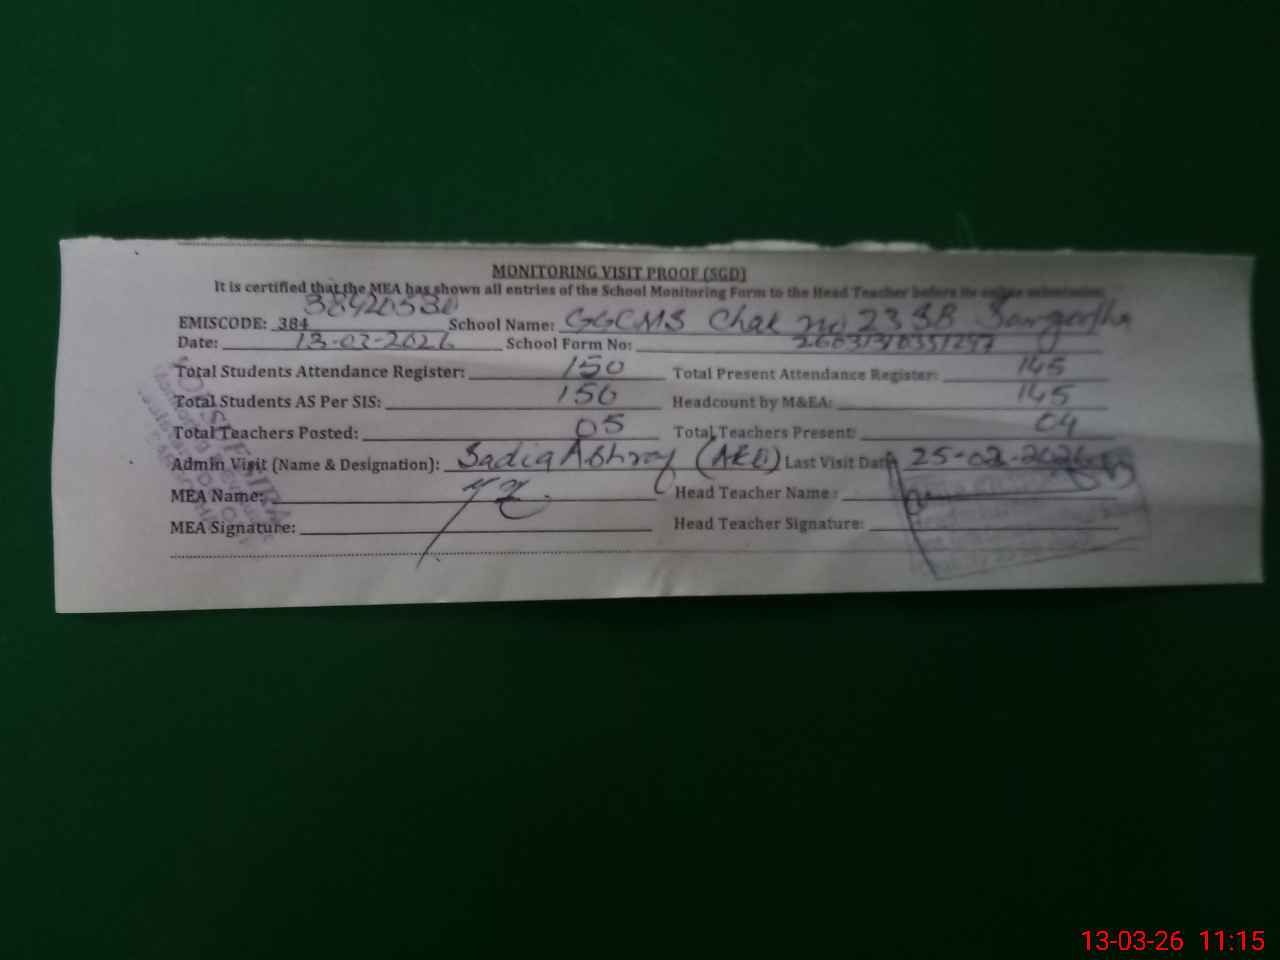 MONITORING VISIT PROOF (SGD)
It is certified that the MEA has shown all entries of the School Monitoring Form to the Head Teacher before its online submission.
38420530
EMISCODE: 384 School Name: GGCMS Chak no 23 SB Sargodha
Date: 13-03-2026 School Form No:
Total Students Attendance Register: 150 Total Present Attendance Register: 145
Total Students AS Per SIS: 150 Headcount by M&EA: 145
Total Teachers Posted: 05 Total Teachers Present: 04
Admin Visit (Name & Designation): Sadia Ashraf (AEO) Last Visit Date 25-02-2026
MEA Name: Head Teacher Name :
MEA Signature: Head Teacher Signature:
13-03-26 11:15